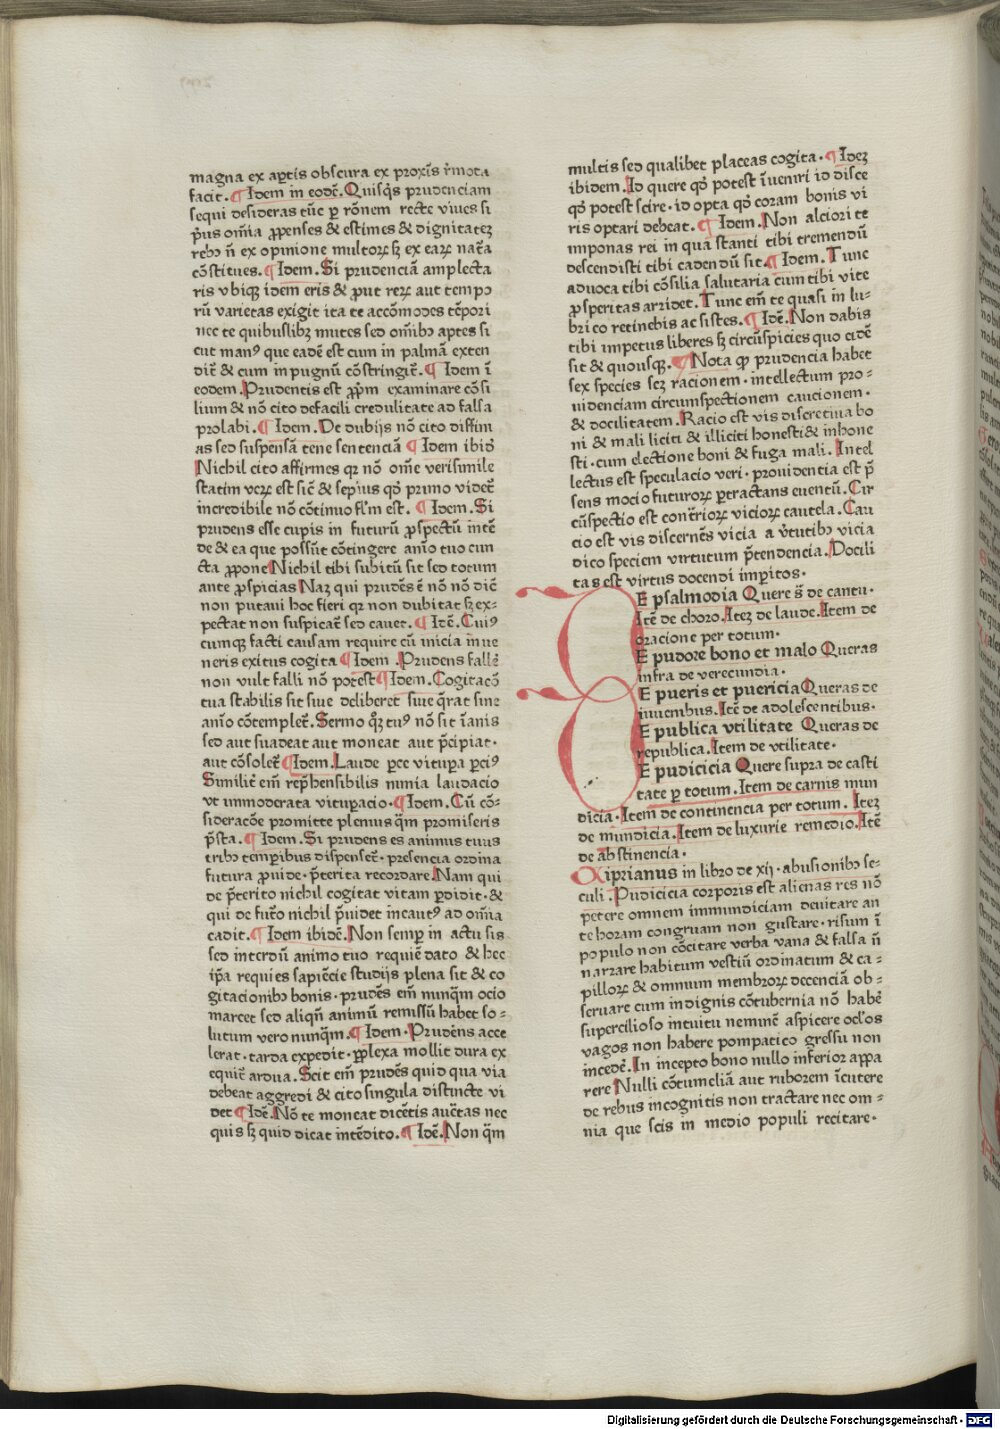 magna ex aꝑtis obscura ex proxīs r̄mota
facit. ¶ Idem in eodē. Quisqꝫ prudenciam
sequi desideras tūc ꝑ rōnem recte viues si
pꝰus om̄ia ꝓpenses & estimes & dignitateꝫ
rebꝰ n̄ ex opinione multoꝝ sꝫ ex eaꝝ nat̄a
cōstitues. ¶ Idem. Si prudenciā amplecta
ris vbiqꝫ idem eris & ꝓut reꝝ aut tempo
rū varietas exigit ita te accōmodes tēpori
nec te quibuslibꝫ mutes sed om̄ibꝰ aptes si
cut manꝰ que eadē est cum in palmā exten
dit̄ & cum in pugnū cōstringit̄. ¶ Idem ī
eodem. Prudentis est ꝓpꝛm examinare cōsi
lium & nō cito defacili credulitate ad falsa
prolabi. ¶ Idem. De dubijs nō cito diffini
as sed suspensā tene sentenciā ¶ Idem ibid̄
Nichil cito affirmes qꝛ nō om̄e verisimile
statim veꝝ est sic̄ & sepius qd̄ primo videt̄
incredibile nō cōtinuo fl̄m est. ¶ Idem. Si
prudens esse cupis in futurū ꝓspectū intē
de & ea que possūt cōtingere anīo tuo cun
cta ꝓpone Nichil tibi subitū sit sed totum
ante ꝓspicias Naꝫ qui prudēs ē nō nō dic̄
non putaui hoc fieri qꝛ non dubitat sꝫ ex⸗
pectat non suspicat̄ sed cauet. ¶ Itē. Cuiꝰ
cumqꝫ facti causam require cū inicia inue
neris exitus cogita ¶ Idem. Prudens falle᷑
non vult falli nō potest ¶ Idem. Cogitacō
tua stabilis sit siue deliberet siue q̄rat siue
anīo cōtemplet̄. Sermo qꝫ tuꝰ nō sit īanis
sed aut suadeat aut moneat aut p̄cipiat.
aut cōsolet̄ ¶ Idem. Laude ꝑce vituꝑa ꝑciꝰ
Similit̄ em̄ rep̄hensibilis nimia laudacio
vt immoderata vituꝑacio. ¶ Idem. Cū cō⸗
sideracōe promitte plenius qm̄ promiseris
p̄sta. ¶ Idem. Si prudens es animus tuus
tribꝰ temꝑibus dispenset̄. presencia ordina
futura ꝓuide. p̄terita recordare. Nam qui
de p̄terito nichil cogitat vitam ꝑdidit. &
qui de fut̄o nichil p̄uidet incautꝰ ad om̄ia
cadit. ¶ Idem ibidē. Non semꝑ in actu sis
sed interdū animo tuo requiē dato & hec
ip̄a requies sapiēcie studijs plena sit & co
gitacionibꝰ bonis. prudēs em̄ nunqm̄ ocio
marcet sed aliqn̄ animū remissū habet so⸗
lutum vero nunqm̄. ¶ Idem. Prudēns acce
lerat. tarda expedit. ꝑplexa mollit dura ex
equit̄ ardua. Scit em̄ prudēs quid qua via
debeat aggredi & cito singula distincte vi
det ¶ Idē. Nō te moneat dicētis auctas nec
quis sꝫ quid dicat intēdito. ¶ Idē. Non qm̄
multis sed qualibet placeas cogita. ¶ Ideꝫ
ibidem. Id quere qd̄ potest īueniri id disce
qd̄ potest scire. id opta qd̄ coram bonis vi
ris optari debeat. ¶ Idem. Non alciori te
imponas rei in qua stanti tibi tremendū
descendisti tibi cadendū sit. ¶ Idem. Tunc
aduoca tibi cōsilia salutaria cum tibi vite
ꝓsperitas arridet. Tunc em̄ te quasi in lu⸗
brico retinebis ac sistes. ¶ Idē. Non dabis
tibi impetus liberes sꝫ circūspicies quo eūdē
sit & quousqꝫ. ¶ Nota qꝫ prudencia habet
sex species scꝫ racionem. intellectum pro⸗
uidenciam circumspectionem caucionem.
& docilitatem. Racio est vis discretiua bo
ni & mali liciti & illiciti honesti & inhone
sti. cum electione boni & fuga mali. Intel
lectus est speculacio veri. prouidentia est p̄
sens nocio futuroꝝ ꝑtractans euentū. Cir
cūspectio est cont̄rioꝝ vicioꝝ cautela. Cau
cio est vis discernēs vicia a v̄tutibꝰ vicia
dico speciem virtutum p̄tendencia. Docili
tas est virtus docendi imꝑitos.
E psalmodia Quere s̄ de cantu.
Itē de choro. Iteꝫ de laude. Item de
oracione per totum.
E pudore bono et malo Queras
infra de verecundia.
E pueris et puericia Queras de
iuuenibus. Itē de adolescentibus.
E publica vtilitate Queras de
republica. Item de vtilitate.
E pudicicia Quere supra de casti
tate ꝑ totum. Item de carnis mun
dicia. Item de continencia per totum. Iteꝫ
de mundicia. Item de luxurie remedio. Itē
de abstinencia.
Ciprianus in libro de xij. abusionibꝰ se⸗
culi. Pudicicia corporis est alienas res nō
petere omnem immundiciam deuitare an
te horam congruam non gustare. risum ī
populo non cōcitare verba vana & falsa n̄
narrare habitum vestiū ordinatum & ca⸗
pilloꝝ & omnium membroꝝ decenciā ob⸗
seruare cum indignis cōtubernia nō habe᷑
supercilioso intuitu neminē aspicere oclos
vagos non habere pompatico gressu non
incede᷑. In incepto bono nullo inferior appa
rere Nulli cōtumeliā aut ruborem īcutere
de rebus incognitis non tractare nec om⸗
nia que scis in medio populi recitare.
Digitalisierung gefördert durch die Deutsche Forschungsgemeinschaft - DFG